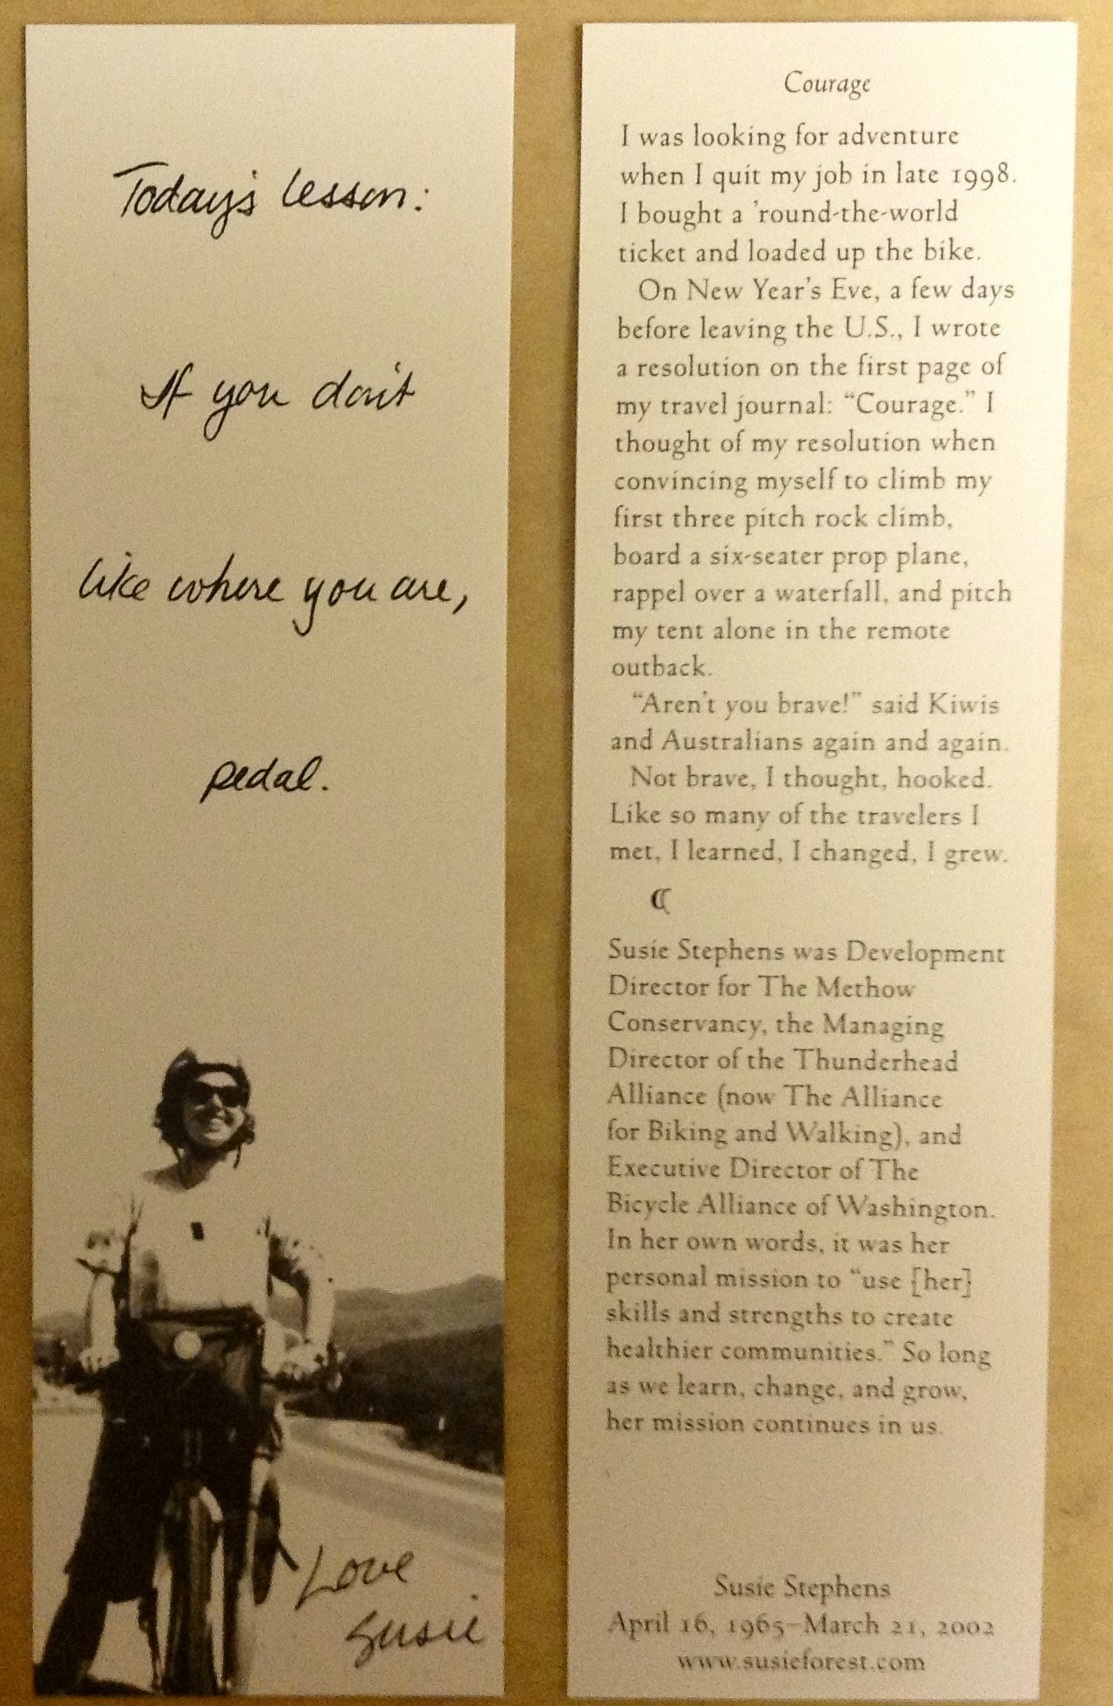 Today's lesson:
If you don't
like where you are,
pedal.
Love
Susie
Courage
I was looking for adventure
when I quit my job in late 1998.
I bought a 'round-the-world
ticket and loaded up the bike.
On New Year's Eve, a few days
before leaving the U.S., I wrote
a resolution on the first page of
my travel journal: “Courage.” I
thought of my resolution when
convincing myself to climb my
first three pitch rock climb,
board a six-seater prop plane,
rappel over a waterfall, and pitch
my tent alone in the remote
outback.
“Aren't you brave!” said Kiwis
and Australians again and again.
Not brave, I thought, hooked.
Like so many of the travelers I
met, I learned, I changed, I grew.
Susie Stephens was Development
Director for The Methow
Conservancy, the Managing
Director of the Thunderhead
Alliance (now The Alliance
for Biking and Walking), and
Executive Director of The
Bicycle Alliance of Washington.
In her own words, it was her
personal mission to “use [her]
skills and strengths to create
healthier communities.” So long
as we learn, change, and grow,
her mission continues in us.
Susie Stephens
April 16, 1965–March 21, 2002
www.susieforest.com